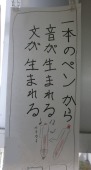 一本のペンから
音が生まれる
文が生まれる